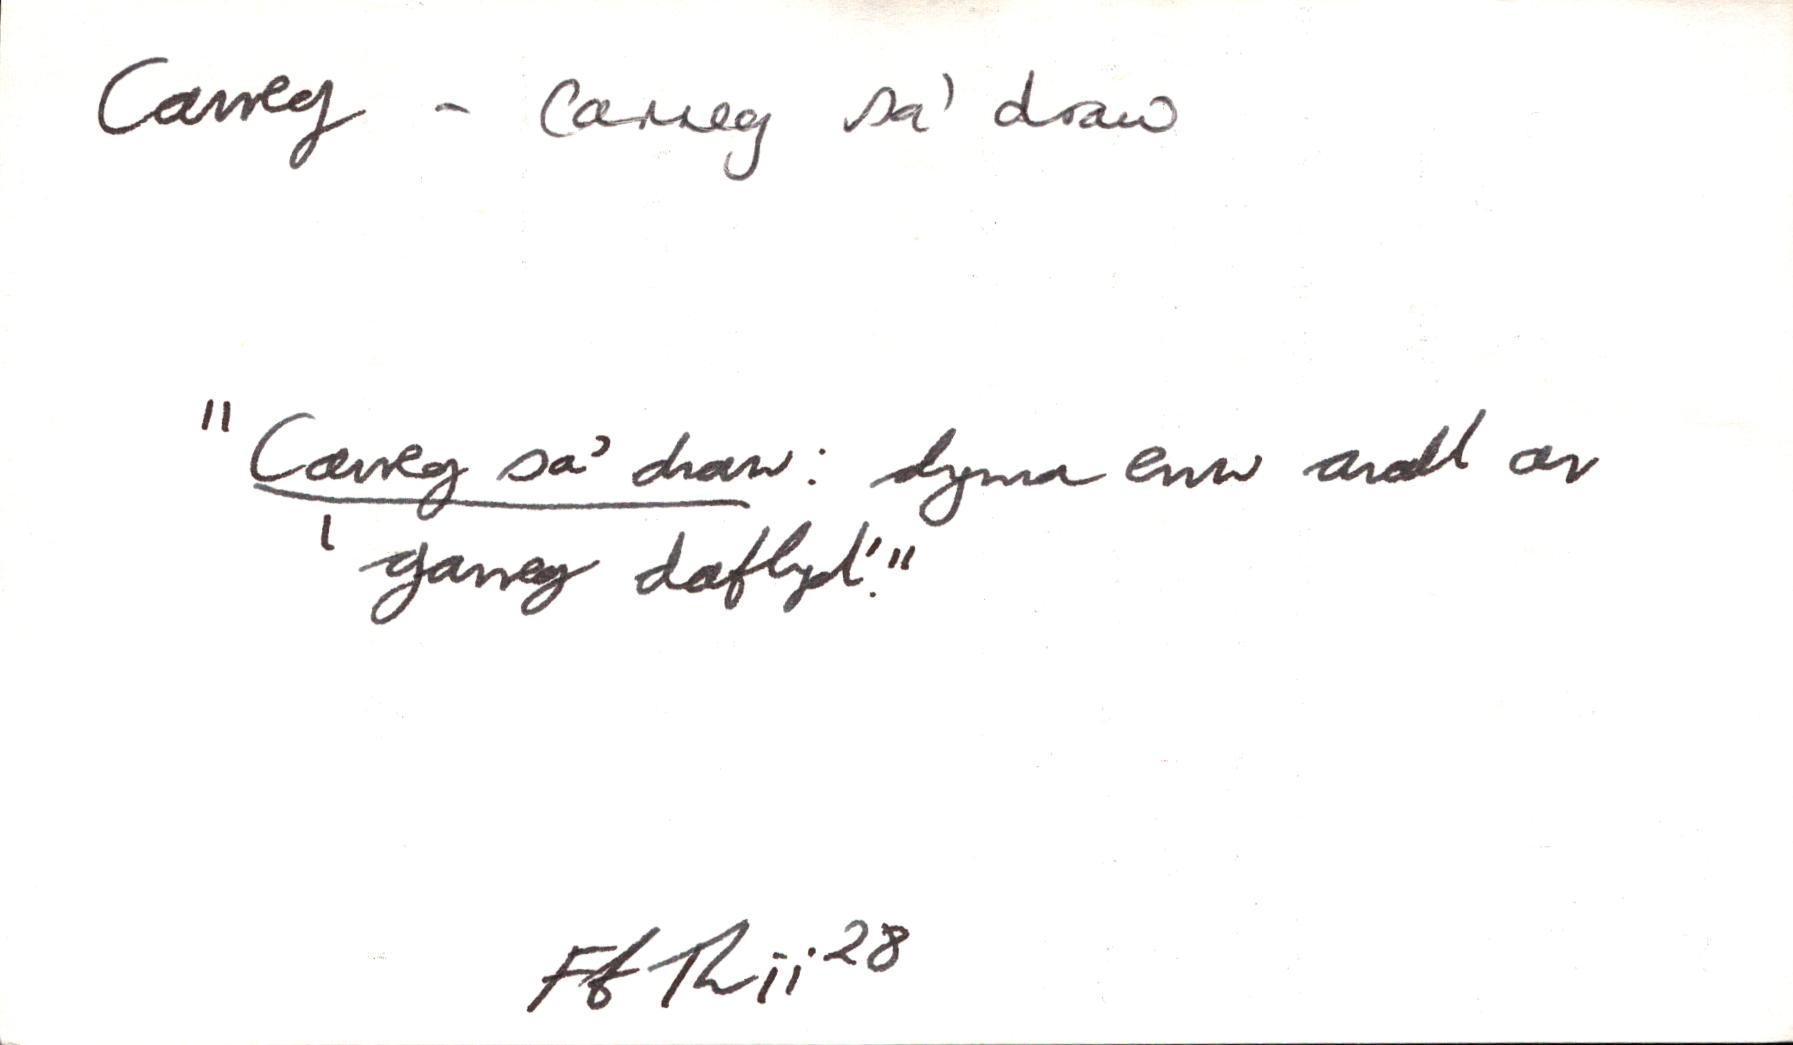 Carreg - Carreg sa' draw
"Carreg sa' draw: dyma enw arall ar
'garreg daflyd'."
Ff Th ii 28